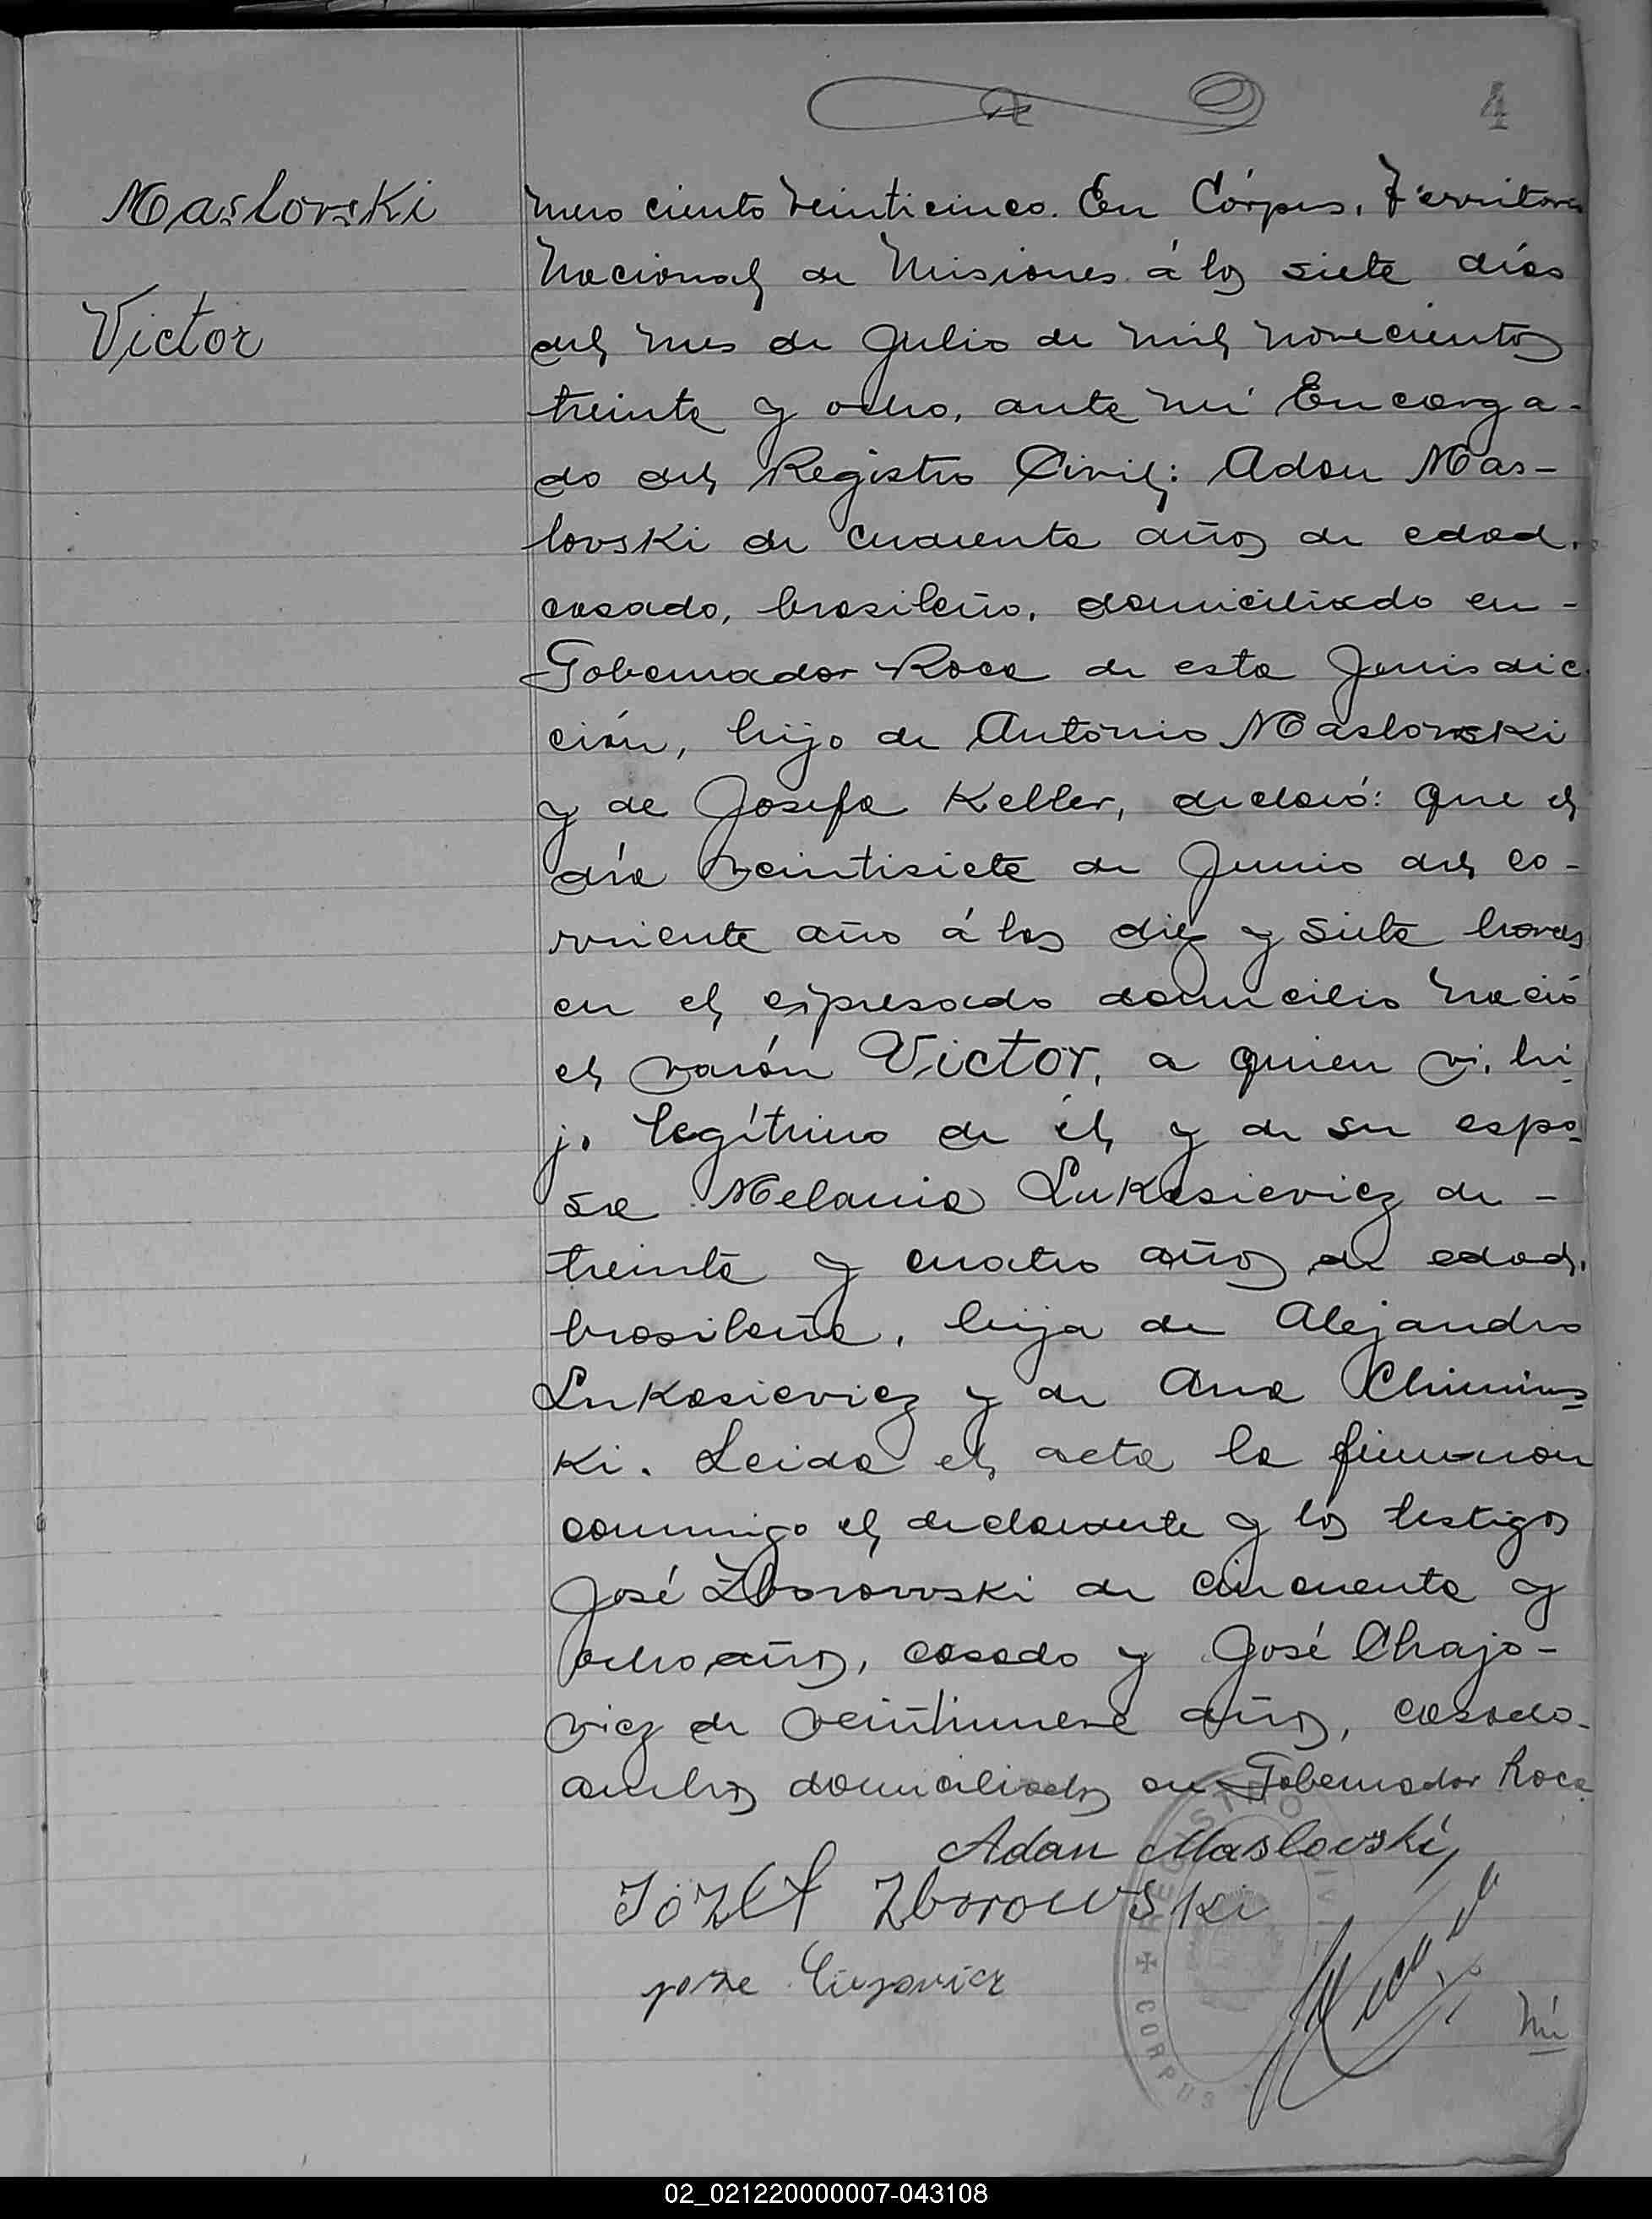 4
Maslovski
Victor
mero ciento veinticinco. En Córpus, Territorio
Nacional de Misiones á los siete días
del mes de Julio de mil novecientos
treinta y ocho, ante mí Encarga-
do del Registro Civil: Adan Mas-
lovski de cuarenta años de edad,
casado, brasileño, domiciliado en -
Gobernador Roca de esta Jurisdic
ción, hijo de Antonio Maslovski
y de Josefa Keller, declaró: Que el
día veintisiete de Junio del co-
rriente año á las diez y siete horas
en el espresado domicilio nació
el varón Victor, a quien vi, hi-
jo legítimo de él y de su espo-
sa Melania Lukasievicz de -
treinta y cuatro años de edad,
brasileña, hija de Alejandro
Lukasievicz y de Ana Chimins-
ki. Leida el acta la firmaron
conmigo el declarante y los testigos
José Zborovski de cincuenta y
ocho años, casado y José Chajo-
vicz de veintinueve años, casado-
ambos domiciliados en Gobernador Roca
Adan Maslovski,
Józef Zborowski
REGISTRO CIVIL
CORPUS
Nú